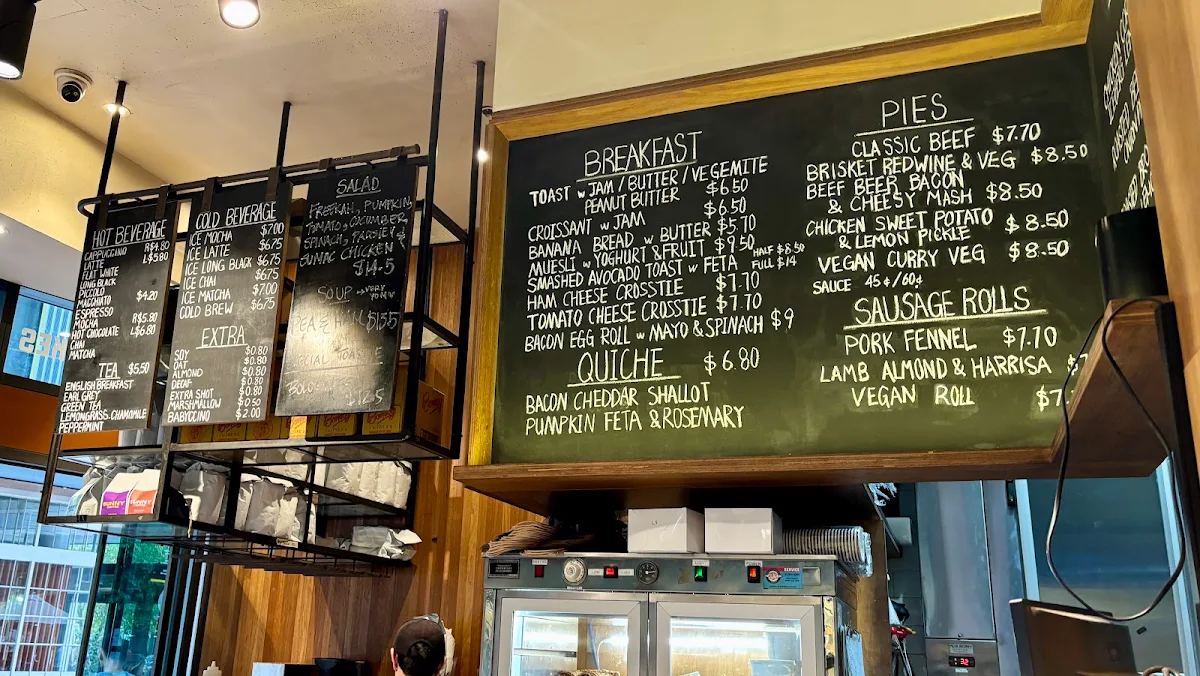 HOT BEVERAGE
R$4.80
CAPPUCCINO L$5.80
LATTE
FLAT WHITE
LONG BLACK
PICCOLO
MACCHIATO $4.20
ESPRESSO
MOCHA R$5.80
HOT CHOCOLATE L$6.80
CHAI
MATCHA
TEA $5.50
ENGLISH BREAKFAST
EARL GREY
GREEN TEA
LEMONGRASS.CHAMOMILE
PEPPERMINT
COLD BEVERAGE
ICE MOCHA $7.00
ICE LATTE $6.75
ICE LONG BLACK $6.75
ICE CHAI $6.75
ICE MATCHA $7.00
COLD BREW $6.75
EXTRA
SOY $0.80
OAT $0.80
ALMOND $0.80
DECAF $0.80
EXTRA SHOT $0.80
MARSHMALLOW $0.50
BABYCCINO $2.00
SALAD
FREEKAH, PUMPKIN,
TOMATO, CUCUMBER,
SPINACH, PARSLEY &
SUMAC CHICKEN
$14.5
SOUP → VERY YUMMY
PEA & HAM $13.5
BREAKFAST
TOAST w JAM / BUTTER / VEGEMITE
PEANUT BUTTER $6.50
CROISSANT w JAM $6.50
BANANA BREAD w BUTTER $5.70
MUESLI w YOGHURT & FRUIT $9.50
SMASHED AVOCADO TOAST w FETA HALF $8.50 FULL $14
HAM CHEESE CROSSTIE $7.70
TOMATO CHEESE CROSSTIE $7.70
BACON EGG ROLL w MAYO & SPINACH $9
QUICHE $6.80
BACON CHEDDAR SHALLOT
PUMPKIN FETA & ROSEMARY
PIES
CLASSIC BEEF $7.70
BRISKET REDWINE & VEG $8.50
BEEF BEER BACON
& CHEESY MASH $8.50
CHICKEN SWEET POTATO
& LEMON PICKLE $8.50
VEGAN CURRY VEG $8.50
SAUCE 45¢/60¢
SAUSAGE ROLLS
PORK FENNEL $7.70
LAMB ALMOND & HARRISA $7
VEGAN ROLL $7.